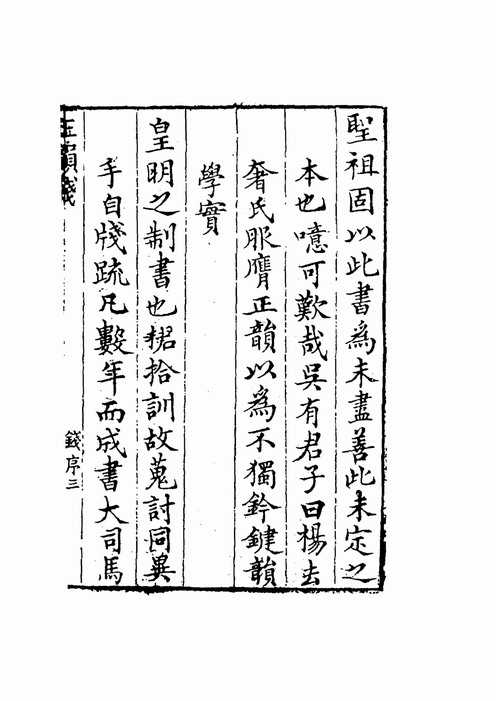 聖祖固以此書爲未盡善此未定之
本也噫可歎哉吳有君子曰楊去
奢氏服膺正韻以爲不獨鈐鍵韻
學實
皇明之制書也捃拾訓故蒐討同異
手自牋疏凡數年而成書大司馬
正韻牋
錢序三